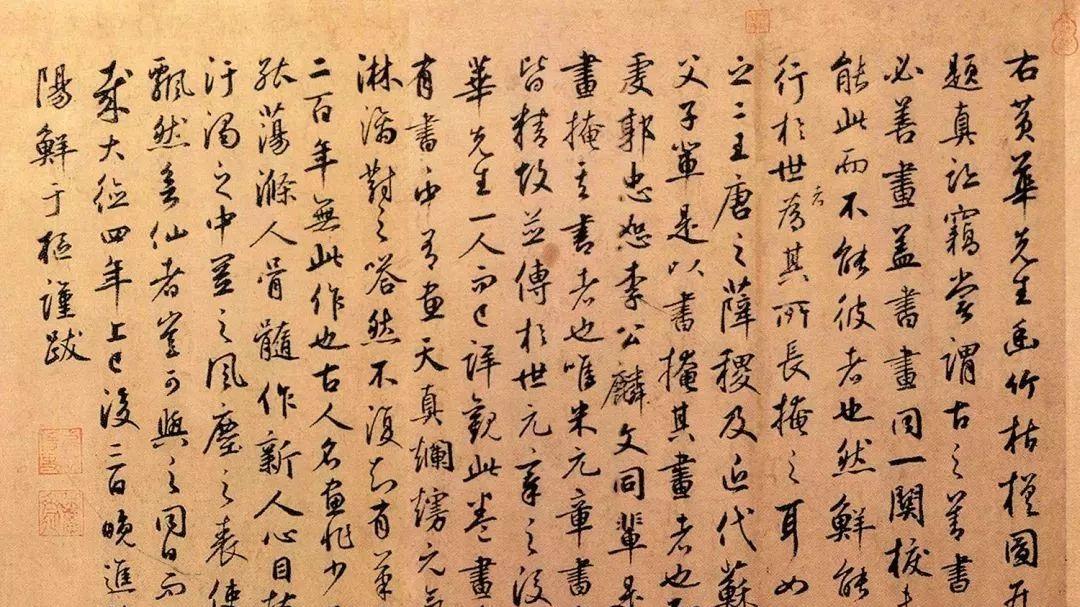 右黄華先生幽竹枯槎圖并
題真迹竊嘗謂古之善書
必善畫盖書畫同一關棙未
能此而不能彼者也然鮮能
行於世者為其所長掩之耳如
之二王唐之薛稷及近代蘇
父子輩是以書掩其畫者也
處郭忠恕李公麟文同輩是
畫掩其書者也唯米元章書
皆精故並傳於世元章之後
華先生一人而已詳觀此卷畫
有書書中有畫天真爛熳元氣
淋漓對之嗒然不復知有筆
二百年無此作也古人名畫非少
能蕩滌人骨髓作新人心目拔
汙濁之中置之風塵之表使
飄然若仙者豈可與之同日而
哉大德四年上巳後三日晚進
陽鮮于樞謹跋